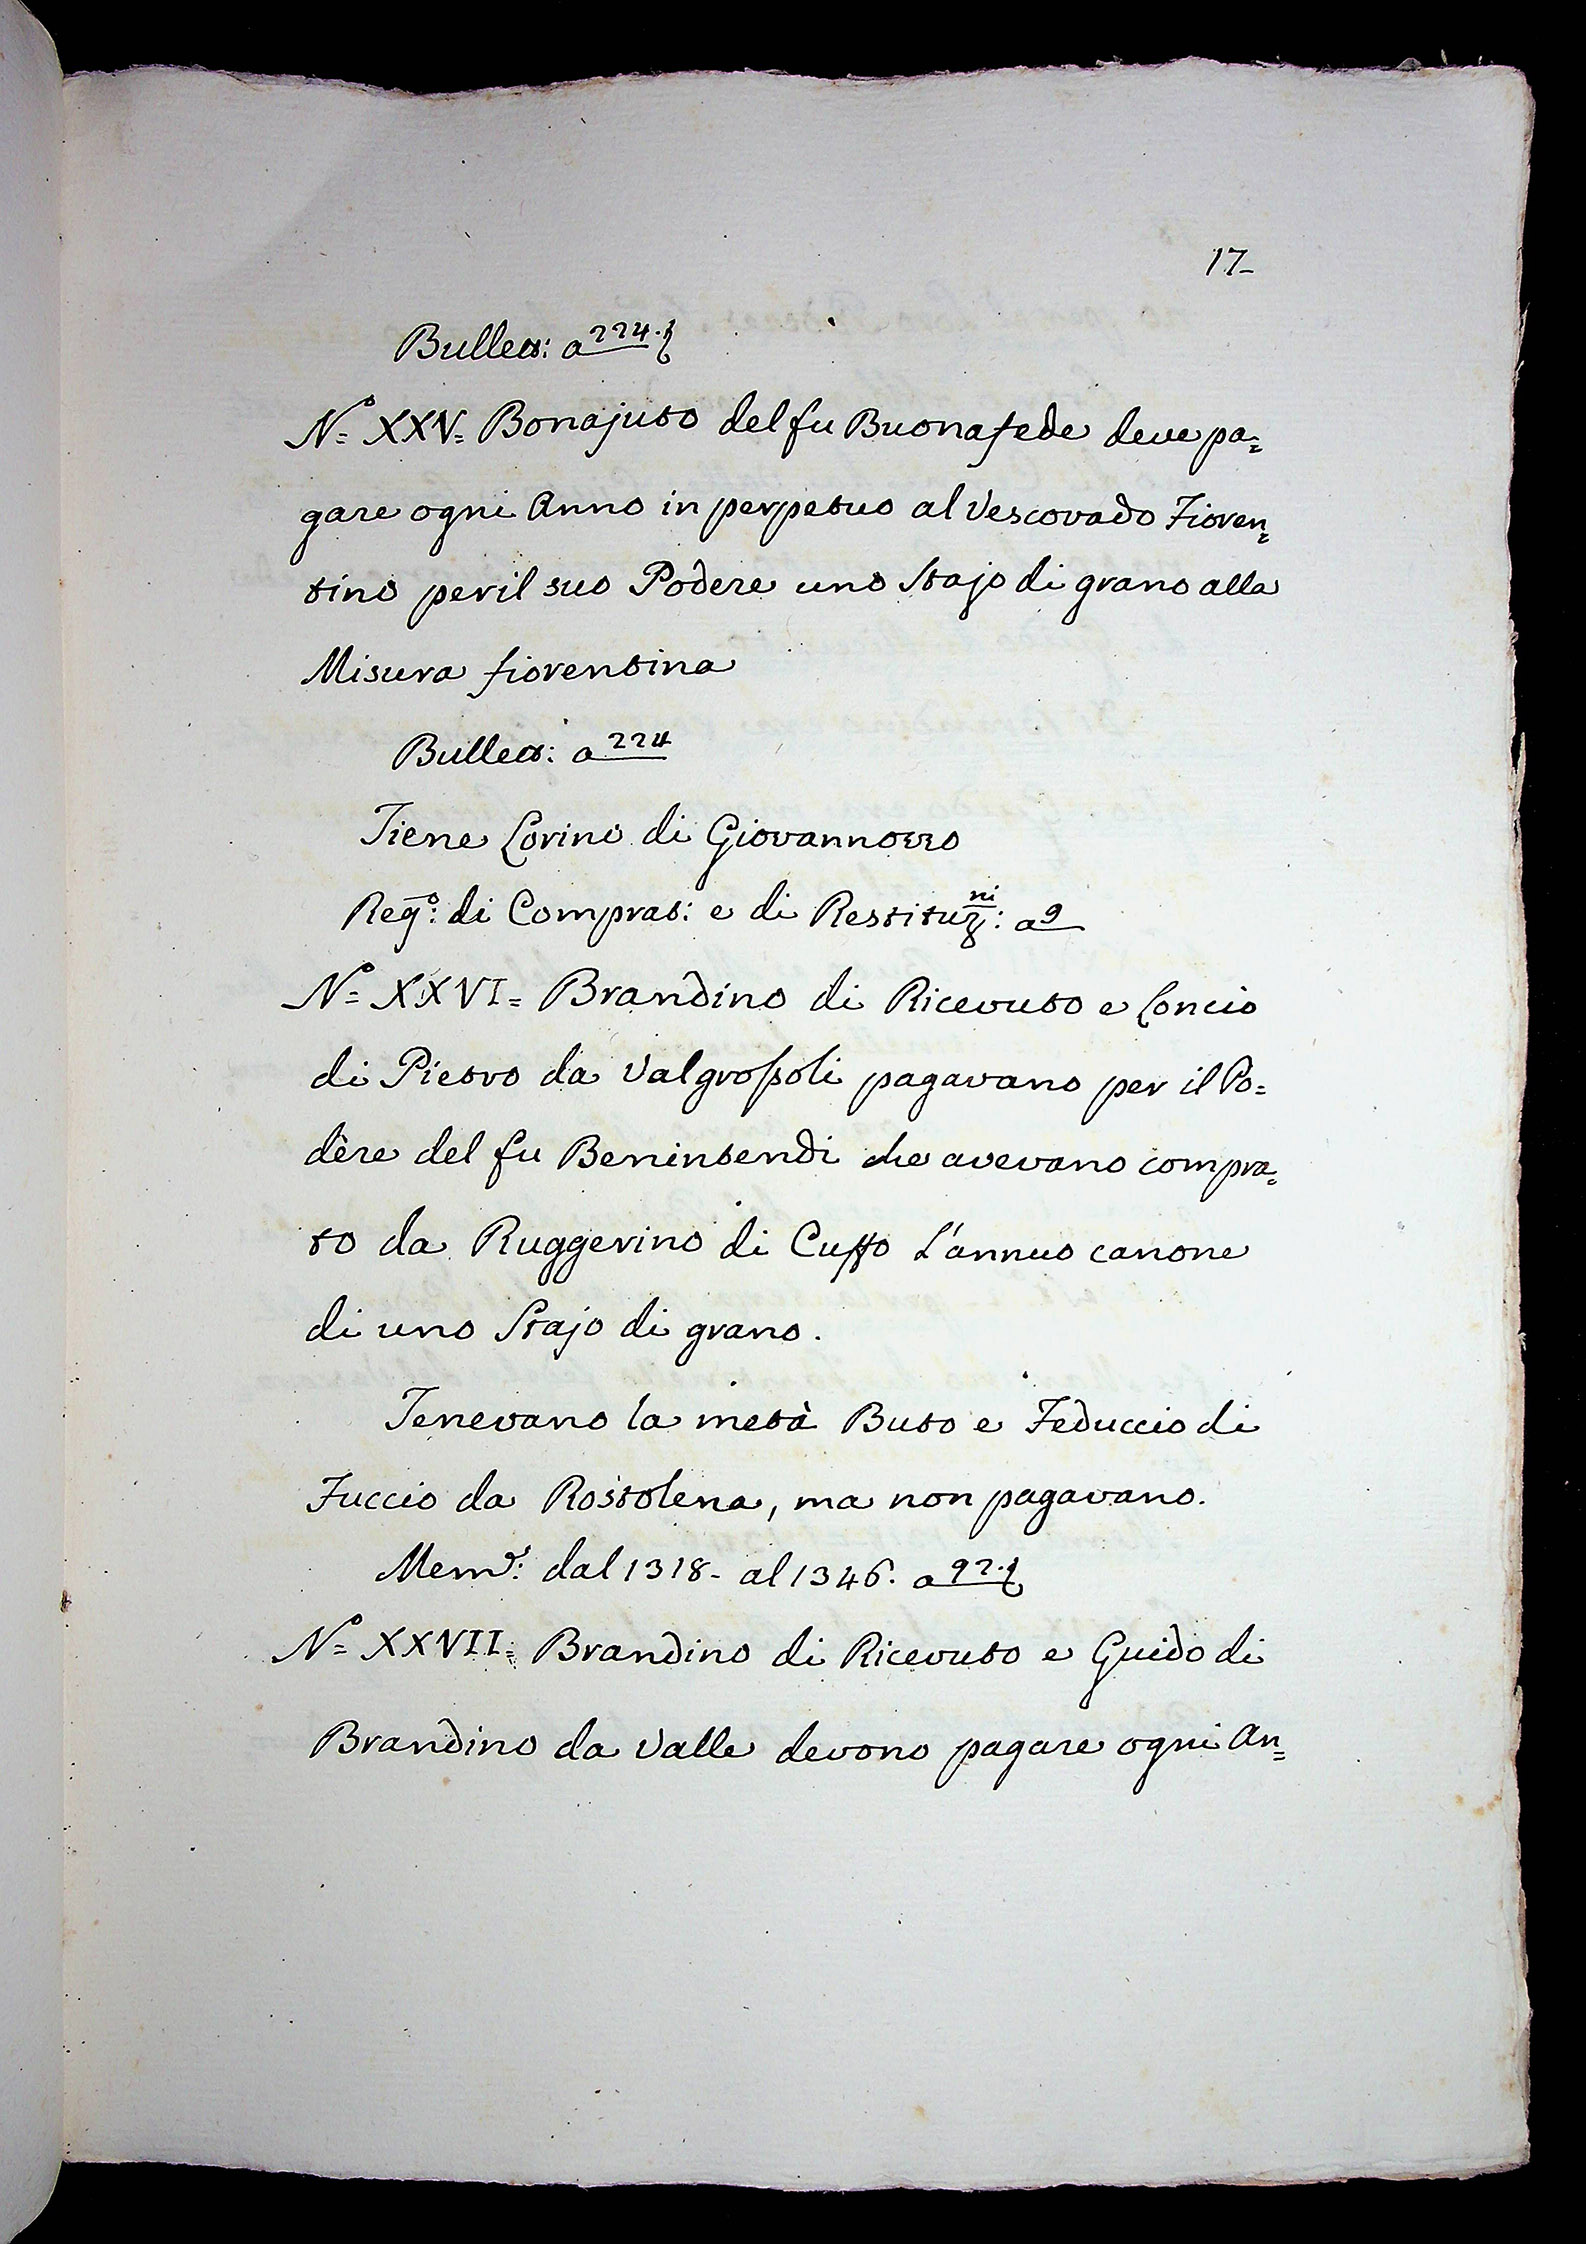 17
Bullett: a 224.
N.° XXV= Bonajuto del fu Buonafede deve pa=
gare ogni Anno in perpetuo al Vescovado Fioren=
tino per il suo Podere uno Stajo di grano alla
Misura fiorentina
Bullett: a 224
Tiene Corino di Giovannozzo
Reg.°: di Comprat: e di Restituz.ni: a 9
N.° XXVI= Brandino di Ricevuto e Concio
di Pietro da Valgrossoli pagavano per il Po=
dère del fu Benintendi che avevano compra=
to da Ruggerino di Cuffo l'annuo canone
di uno Stajo di grano.
Tenevano la metà Buto e Feduccio di
Fuccio da Rostolena, ma non pagavano.
Mem.e: dal 1318- al 1346. a 92.
N.° XXVII= Brandino di Ricevuto e Guido di
Brandino da Valle devono pagare ogni An=